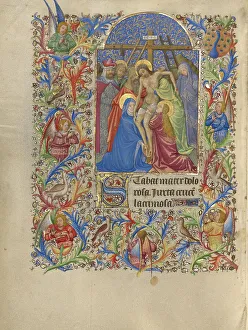 Stabat mater dolo
rosa. Juxta crucē
lacrimosa